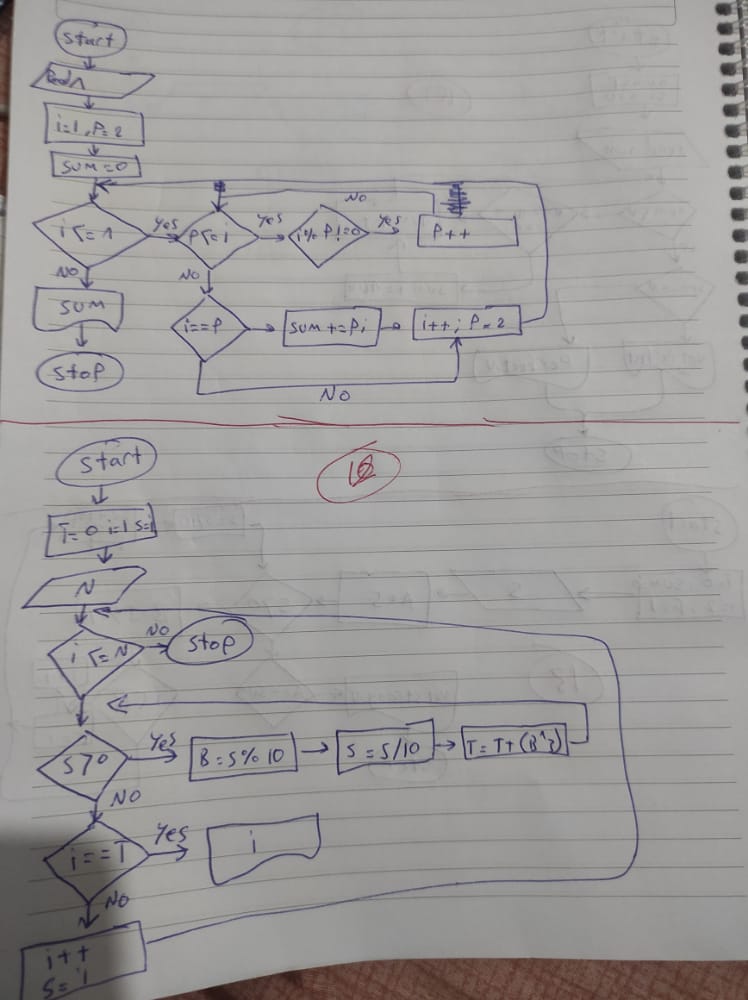 Start
Read n
i=1, P=2
SUM=0
NO
i <= n
Yes
P <= i
Yes
i % P != 0
Yes
P++
NO
NO
SUM
i==P
SUM += P;
i++; P=2
Stop
NO
Start
T=0 i=1 S=i
N
i <= N
NO
Stop
S>0
Yes
B = S % 10
S = S/10
T = T + (B^3)
NO
i == T
Yes
i
NO
i++
S = i